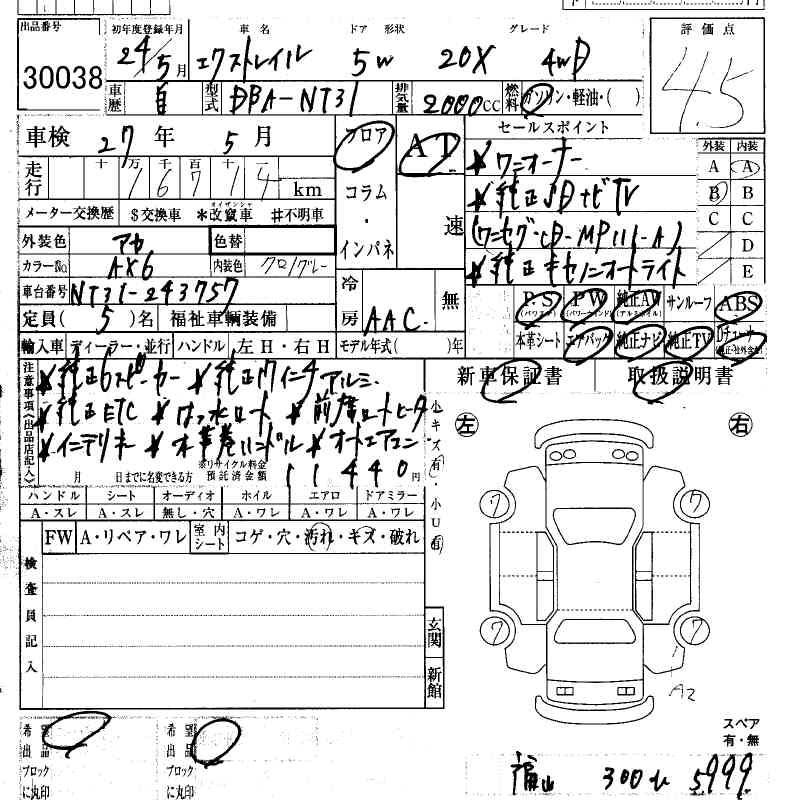 出品番号 30038
初年度登録年月 24/5月 車名 エクストレイル ドア 形状 5W グレード 20X 4WD
評価点 4.5
車歴 自 型式 DBA-NT31 排気量 2000cc 燃料 ガソリン・軽油・( )
車検 27年 5月 フロア AT セールスポイント
走行 十 万 千 百 十 一
1 6 7 1 4 km
コラム・インパネ 速
メーター交換歴 $交換車 *改竄車 #不明車
オイザンシャ
外装色 アカ 色替
カラーNo. AX6 内装色 クロ/グレー
車台番号 NT31-243757
定員( 5 )名 福祉車輌装備
冷房 AAC 無
輸入車 ディーラー・並行 ハンドル 左H・右H モデル年式( )年
★ワンオーナー
★純正SDナビTV
★純正キセノンオートライト
外装 内装
A A
B B
C C
D
E
P.S PW 純正AW サンルーフ ABS
(パワステ) (パワーウインド) (アルミホイル)
本革シート エアバッグ 純正ナビ 純正TV Dチューナー
(純正・社外含む)
新車保証書 取扱説明書
注意事項(出品店記入)
★純正6スピーカー ★純正17インチアルミ
★純正ETC ★はっ水シート ★前席シートヒータ
★インテリキー ★本革巻ハンドル ★オートエアコン
月 日までに名変できる方 ※リサイクル料金預託済金額 11440円
小キズ有・小U有
ハンドル シート オーディオ ホイル エアロ ドアミラー
A・スレ A・スレ 無し・穴 A・ワレ A・ワレ A・ワレ
FW A・リペア・ワレ 室内シート コゲ・穴・汚れ・キズ・破れ
検査員記入
玄関
新館
左 右
7 7
7 7
A2
スペア
有・無
希望出品ブロックに丸印 希望出品ブロックに丸印
福山 300 5999